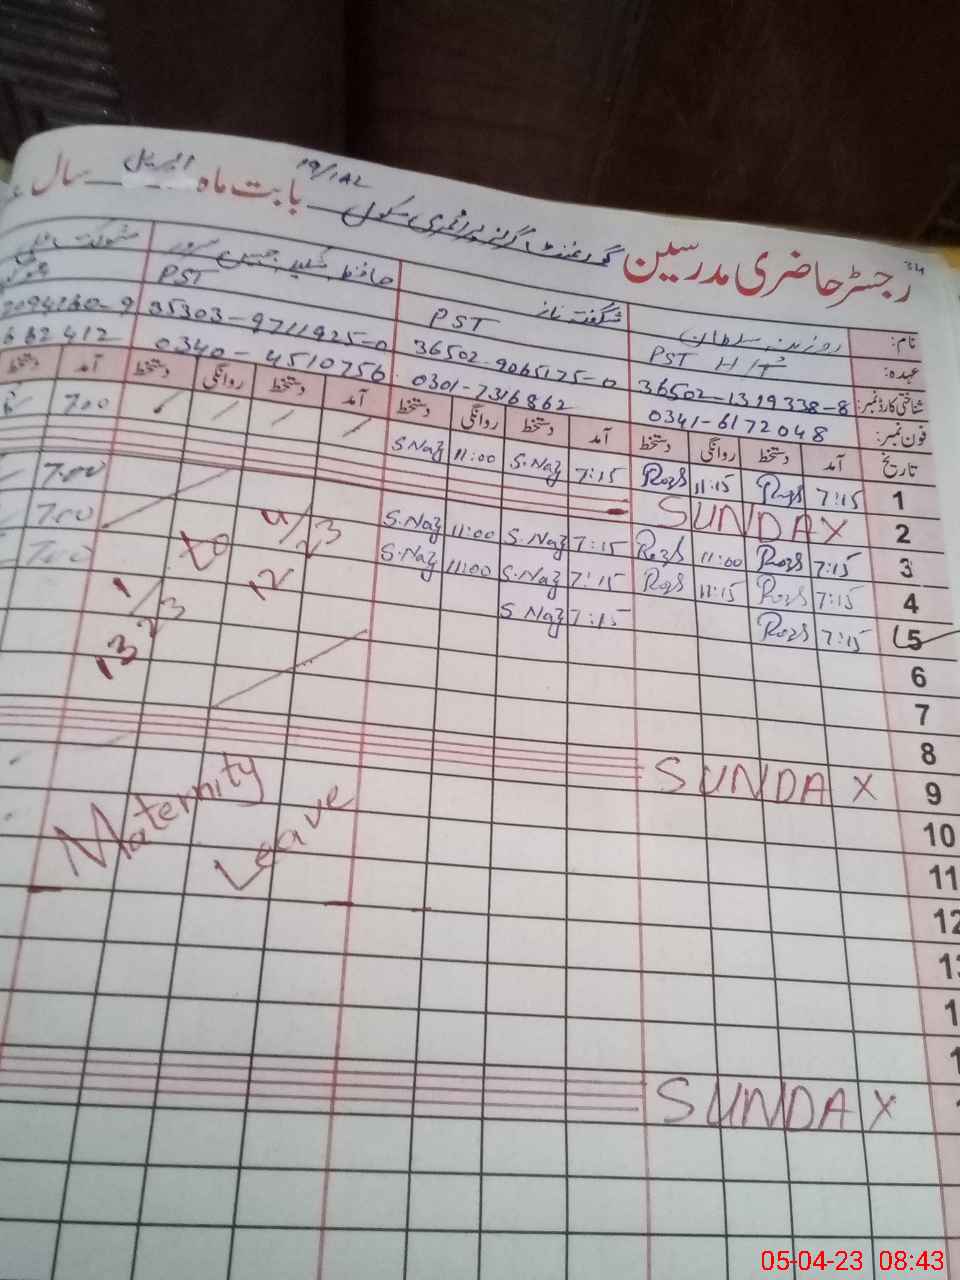 34
رجسٹر حاضری مدرسین گورنمنٹ گرلز پرائمری سکول 19/1AL بابت ماہ اپریل سال
نام: روزینہ سلطان شگفتہ ناز حافظ
عہدہ: PST H/T PST PST
شناختی کارڈ نمبر: 36502-1319338-8 36502-9065175-0 35303-9711925-0
فون نمبر: 0341-6172048 0301-7316862 0340-4510756 662412
تاریخ آمد دستخط روانگی دستخط آمد دستخط روانگی دستخط آمد دستخط روانگی دستخط آمد دستخط
1 7:15 Rozs 11:15 Rozs 7:15 S.Naz 11:00 S.Naz 7:00
2 SUNDAY
3 7:15 Rozs 11:00 Rozs 7:15 S.Naz 11:00 S.Naz 7:00
4 7:15 Rozs 11:15 Rozs 7:15 S.Naz 11:00 S.Naz 7:00
5 7:15 Rozs 7:15 S.Naz 7:00
6
7
8
9 SUNDAY
10
11
12
SUNDAY
to
Maternity
Leave
05-04-23 08:43